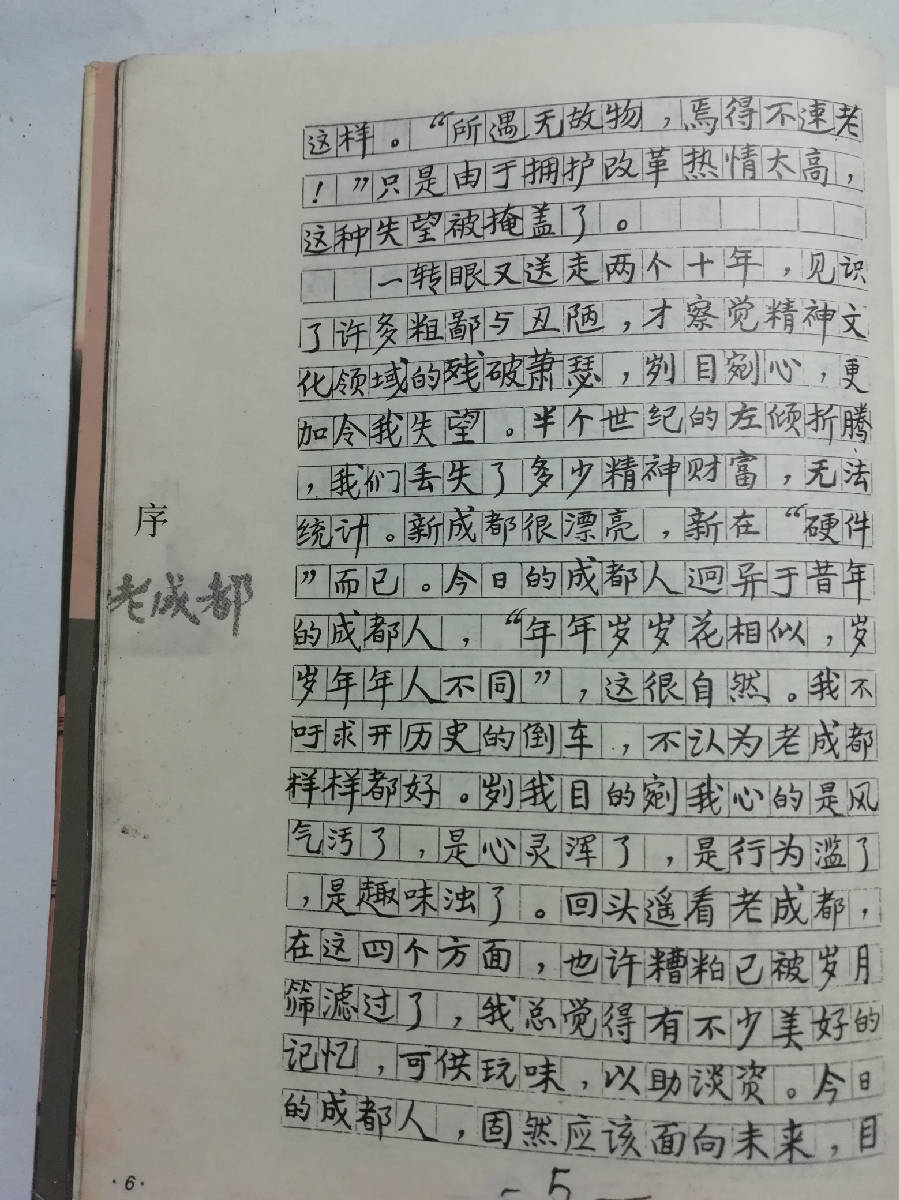 这样。“所遇无故物，焉得不速老
！”只是由于拥护改革热情太高，
这种失望被掩盖了。
一转眼又送走两个十年，见识
了许多粗鄙与丑陋，才察觉精神文
化领域的残破萧瑟，刿目剜心，更
加令我失望。半个世纪的左倾折腾
，我们丢失了多少精神财富，无法
统计。新成都很漂亮，新在“硬件
”而已。今日的成都人迥异于昔年
的成都人，“年年岁岁花相似，岁
岁年年人不同”，这很自然。我不
吁求开历史的倒车，不认为老成都
样样都好。刿我目的剜我心的是风
气污了，是心灵浑了，是行为滥了
，是趣味浊了。回头遥看老成都，
在这四个方面，也许糟粕已被岁月
筛滤过了，我总觉得有不少美好的
记忆，可供玩味，以助谈资。今日
的成都人，固然应该面向未来，目
序
老成都
·6·
-5-